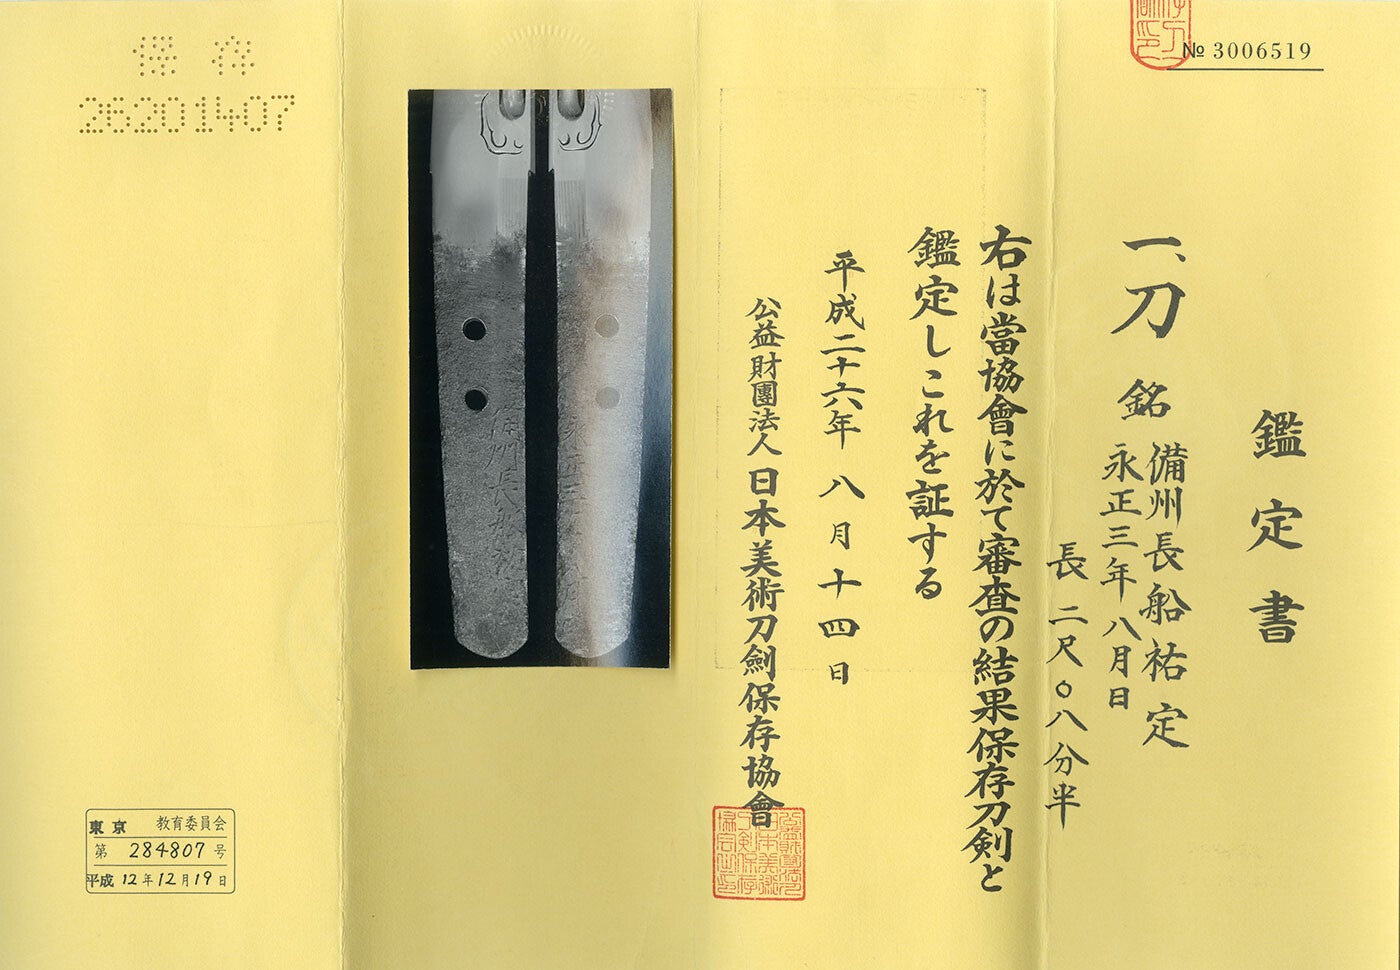 № 3006519
鑑定書
一、刀 銘 備州長船祐定
永正三年八月日
長 二尺〇八分半
右は當協會に於て審査の結果保存刀剣と
鑑定しこれを証する
平成二十六年 八月十四日
公益財團法人 日本美術刀劍保存協會
備州長船祐
保存
26201407
東京 教育委員会
第 284807 号
平成 12年12月19日